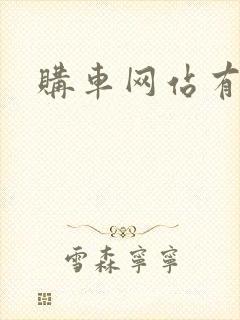 購車网佔有
雪森寧寧